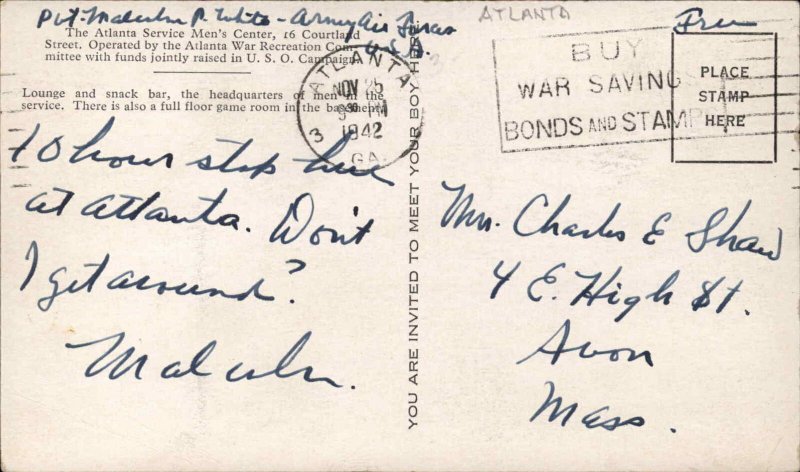 Pvt. Malcolm P. White - Army Air Forces
U.S.A.
The Atlanta Service Men's Center, 16 Courtland
Street. Operated by the Atlanta War Recreation Com-
mittee with funds jointly raised in U. S. O. Campaign.
Lounge and snack bar, the headquarters of men in the
service. There is also a full floor game room in the basement.
10 hour stop here
at Atlanta. Don't
I get around?
Malcolm.
YOU ARE INVITED TO MEET YOUR BOY HERE
ATLANTA
NOV 25
9 30 PM
1942
GA.
3
ATLANTA
Free
BUY
WAR SAVINGS
BONDS AND STAMPS
PLACE
STAMP
HERE
Mrs. Charles E Shaw
4 E. High St.
Avon
Mass.